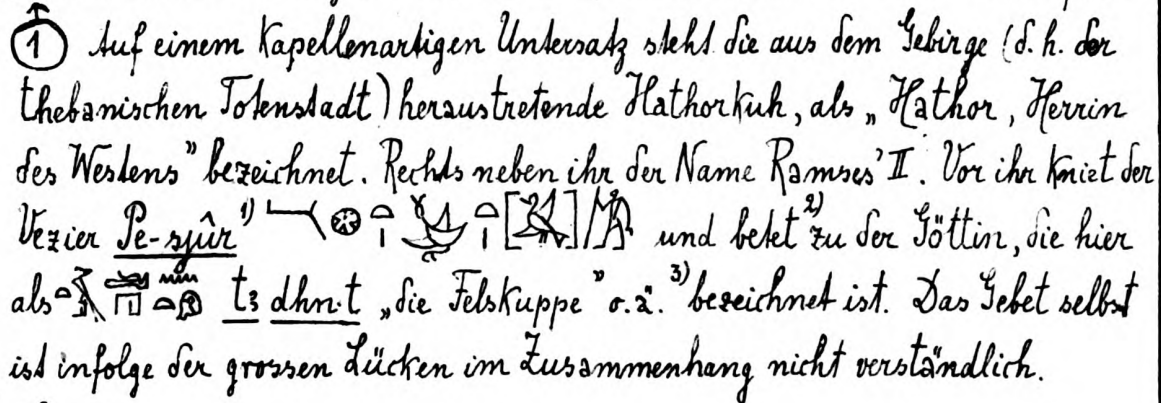 1 Auf einem Kapellenartigen Untersatz steht die aus dem Gebirge (d. h. der
thebanischen Totenstadt) heraustretende Hathorkuh, als „Hathor, Herrin
des Westens" bezeichnet. Rechts neben ihr der Name Ramses' II. Vor ihr kniet der
Vezier Pe-sjûr 1) und betet 2) zu der Göttin, die hier
als tꜣ dhn·t „die Felskuppe" o.ä. 3) bezeichnet ist. Das Gebet selbst
ist infolge der grossen Lücken im Zusammenhang nicht verständlich.